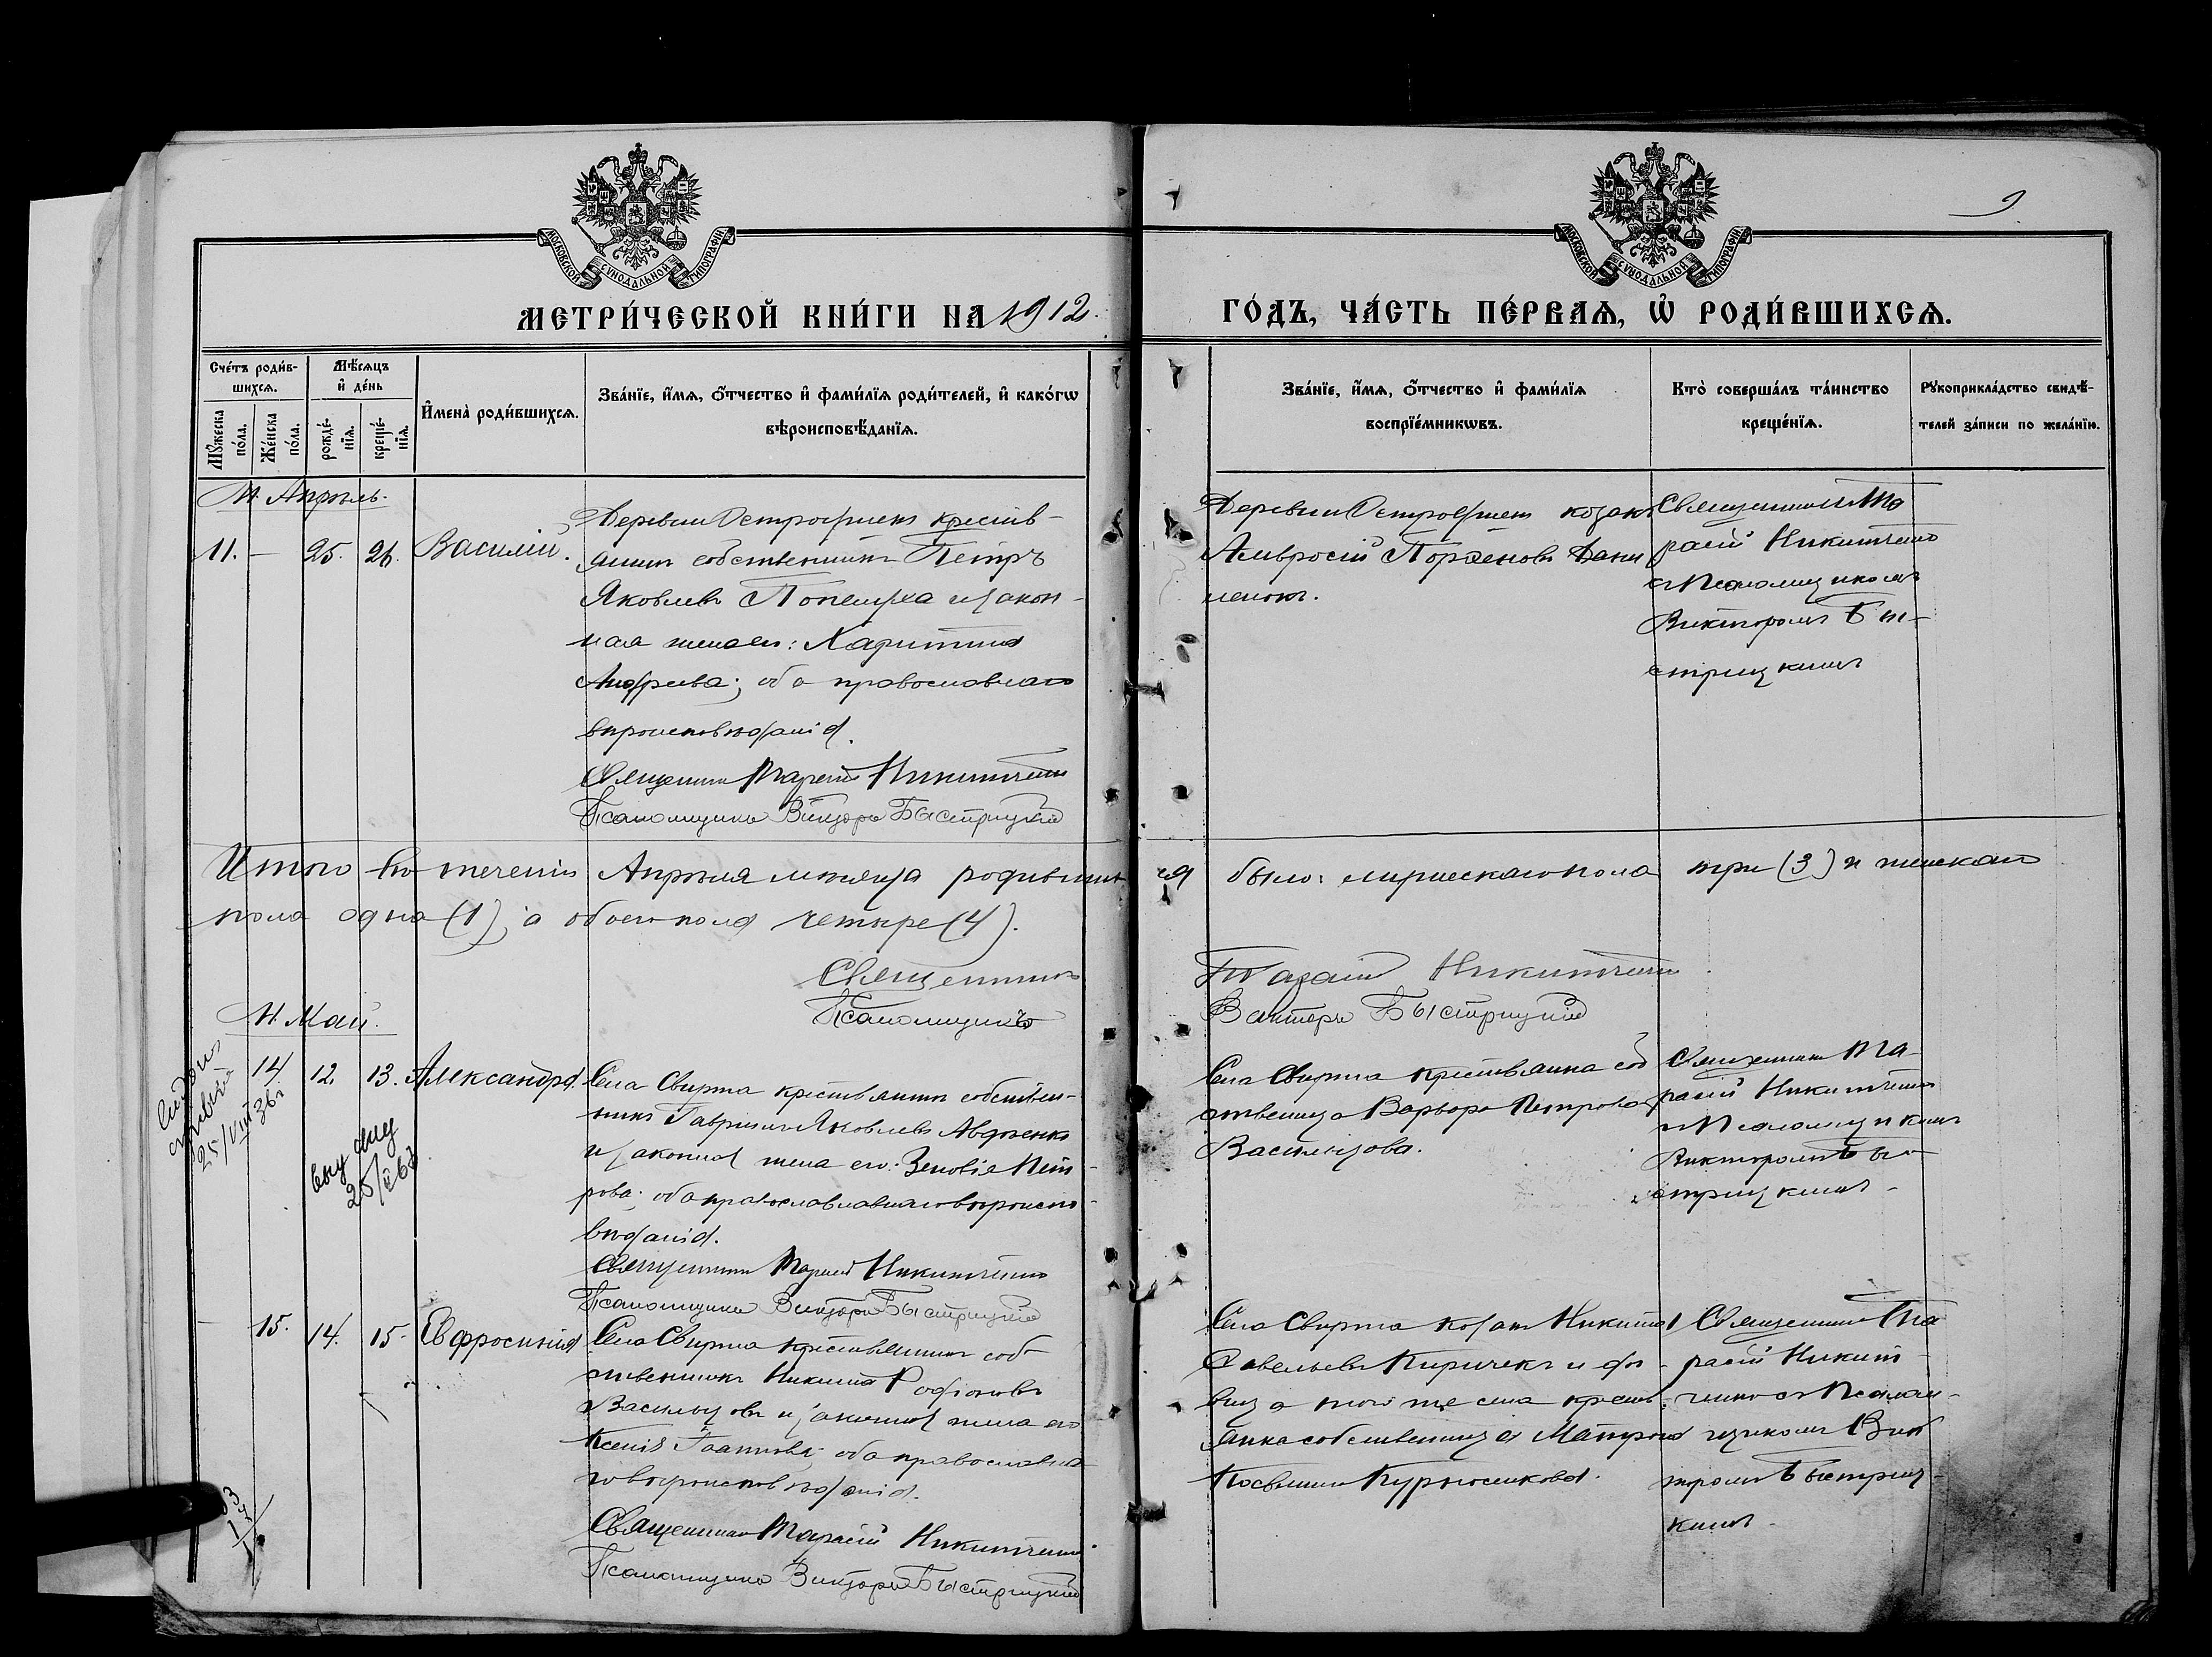 9
МОСКОВСКОЙ СУНОДАЛЬНОЙ ТИПОГРАФІИ
МОСКОВСКОЙ СУНОДАЛЬНОЙ ТИПОГРАФІИ
МЕТРИ́ЧЕСКОЙ КНИ́ГИ НА 1912.
ГО́ДЪ, ЧА́СТЬ ПЕ́РВАѦ, Ѽ РОДИ́ВШИХСѦ.
Сче́тъ роди́в-
шихсѧ.
Мꙋ́жеска по́ла.
Же́нска по́ла.
Мѣ́сяцъ
и҆ де́нь
рожде́-
нїѧ.
креще́-
нїѧ.
И҆мена̀ роди́вшихсѧ.
Зва́нїе, и҆́мѧ, ѻ҆́тчество и҆ фами́лїѧ роди́телей, и҆ како́гѡ
вѣроисповѣ́данїѧ.
Зва́нїе, и҆́мѧ, ѻ҆́тчество и҆ фами́лїѧ
воспрїе́мникѡвъ.
Кто̀ соверша́лъ та́инство
креще́нїѧ.
Рꙋкоприкла́дство свидѣ́-
телей за́писи по жела́нїю.
М. Апрѣль.
11. — 25. 26. Василій.
Деревни крестья-
нинъ собственникъ Петръ
Яковлевъ Попелуха и закон-
ная жена его: Харитина
Андреева; оба православнаго
вѣроисповѣданія.
Священникъ Тарасій Никитченко
Псаломщикъ Викторъ Быстрицкій
Деревни козакъ
Амвросій Дани
ленко.
Священникъ Та
расій Никитченко
съ Псаломщикомъ
Викторомъ Бы-
стрицкимъ
Итого въ теченіи Апрѣля мѣсяца родившихся было: мужескаго пола три (3) и женскаго
пола одна (1), а обоего пола четыре (4).
Священникъ Тарасій Никитченко
Псаломщикъ Викторъ Быстрицкій
М. Май.
25/VIII 36
14 12. 13. Александра.
Села Свирна крестьянинъ собствен-
никъ Гавриилъ Яковлевъ Авдѣенко
и законная жена его: Зеновія Пет-
рова; оба православнаго вѣроиспо-
вѣданія.
Священникъ Тарасій Никитченко
Псаломщикъ Викторъ Быстрицкій
Села Свирна крестьянка соб
ственница Варвара Петрова
Васильцова.
Священникъ Та-
расій Никитченко
съ Псаломщикомъ
Викторомъ Бы-
стрицкимъ
15. 14. 15. Евфросинія
Села Свирна крестьянинъ соб-
ственникъ Никита Родіоновъ
Васильцовъ и законная жена его
Ксенія оба православна-
го вѣроисповѣданія.
Священникъ Тарасій Никитченко
Псаломщикъ Викторъ Быстрицкій
Села Свирна козакъ Никита
Савельевъ Киричекъ и дѣ-
вица того же села кресть-
янка собственница Матрона
Курносикова.
Священникъ Та
расій Никит-
ченко съ Псалом-
щикомъ Вик
торомъ Быстриц-
кимъ